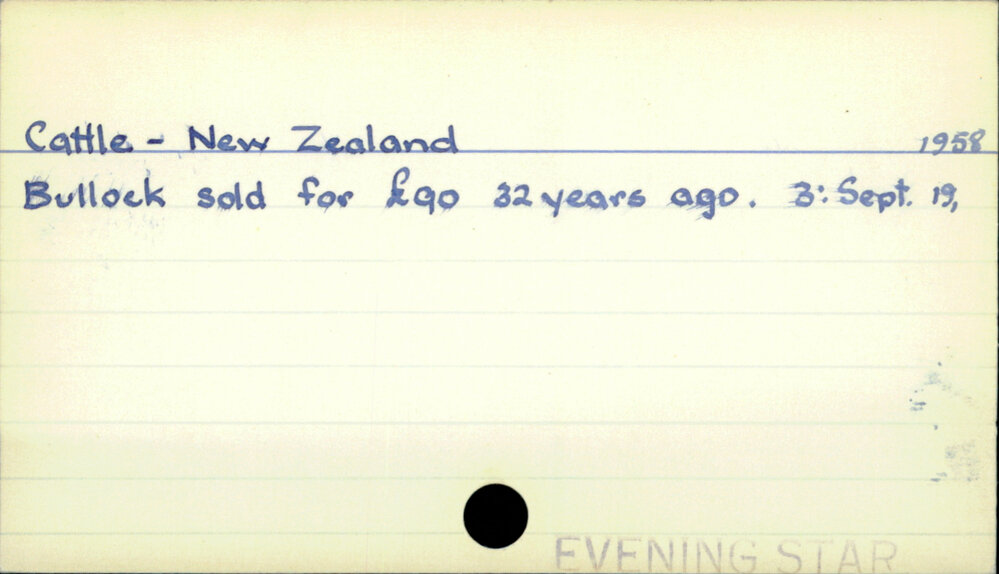 Cattle - New Zealand 1958
Bullock sold for £90 32 years ago. 3: Sept. 19,
EVENING STAR